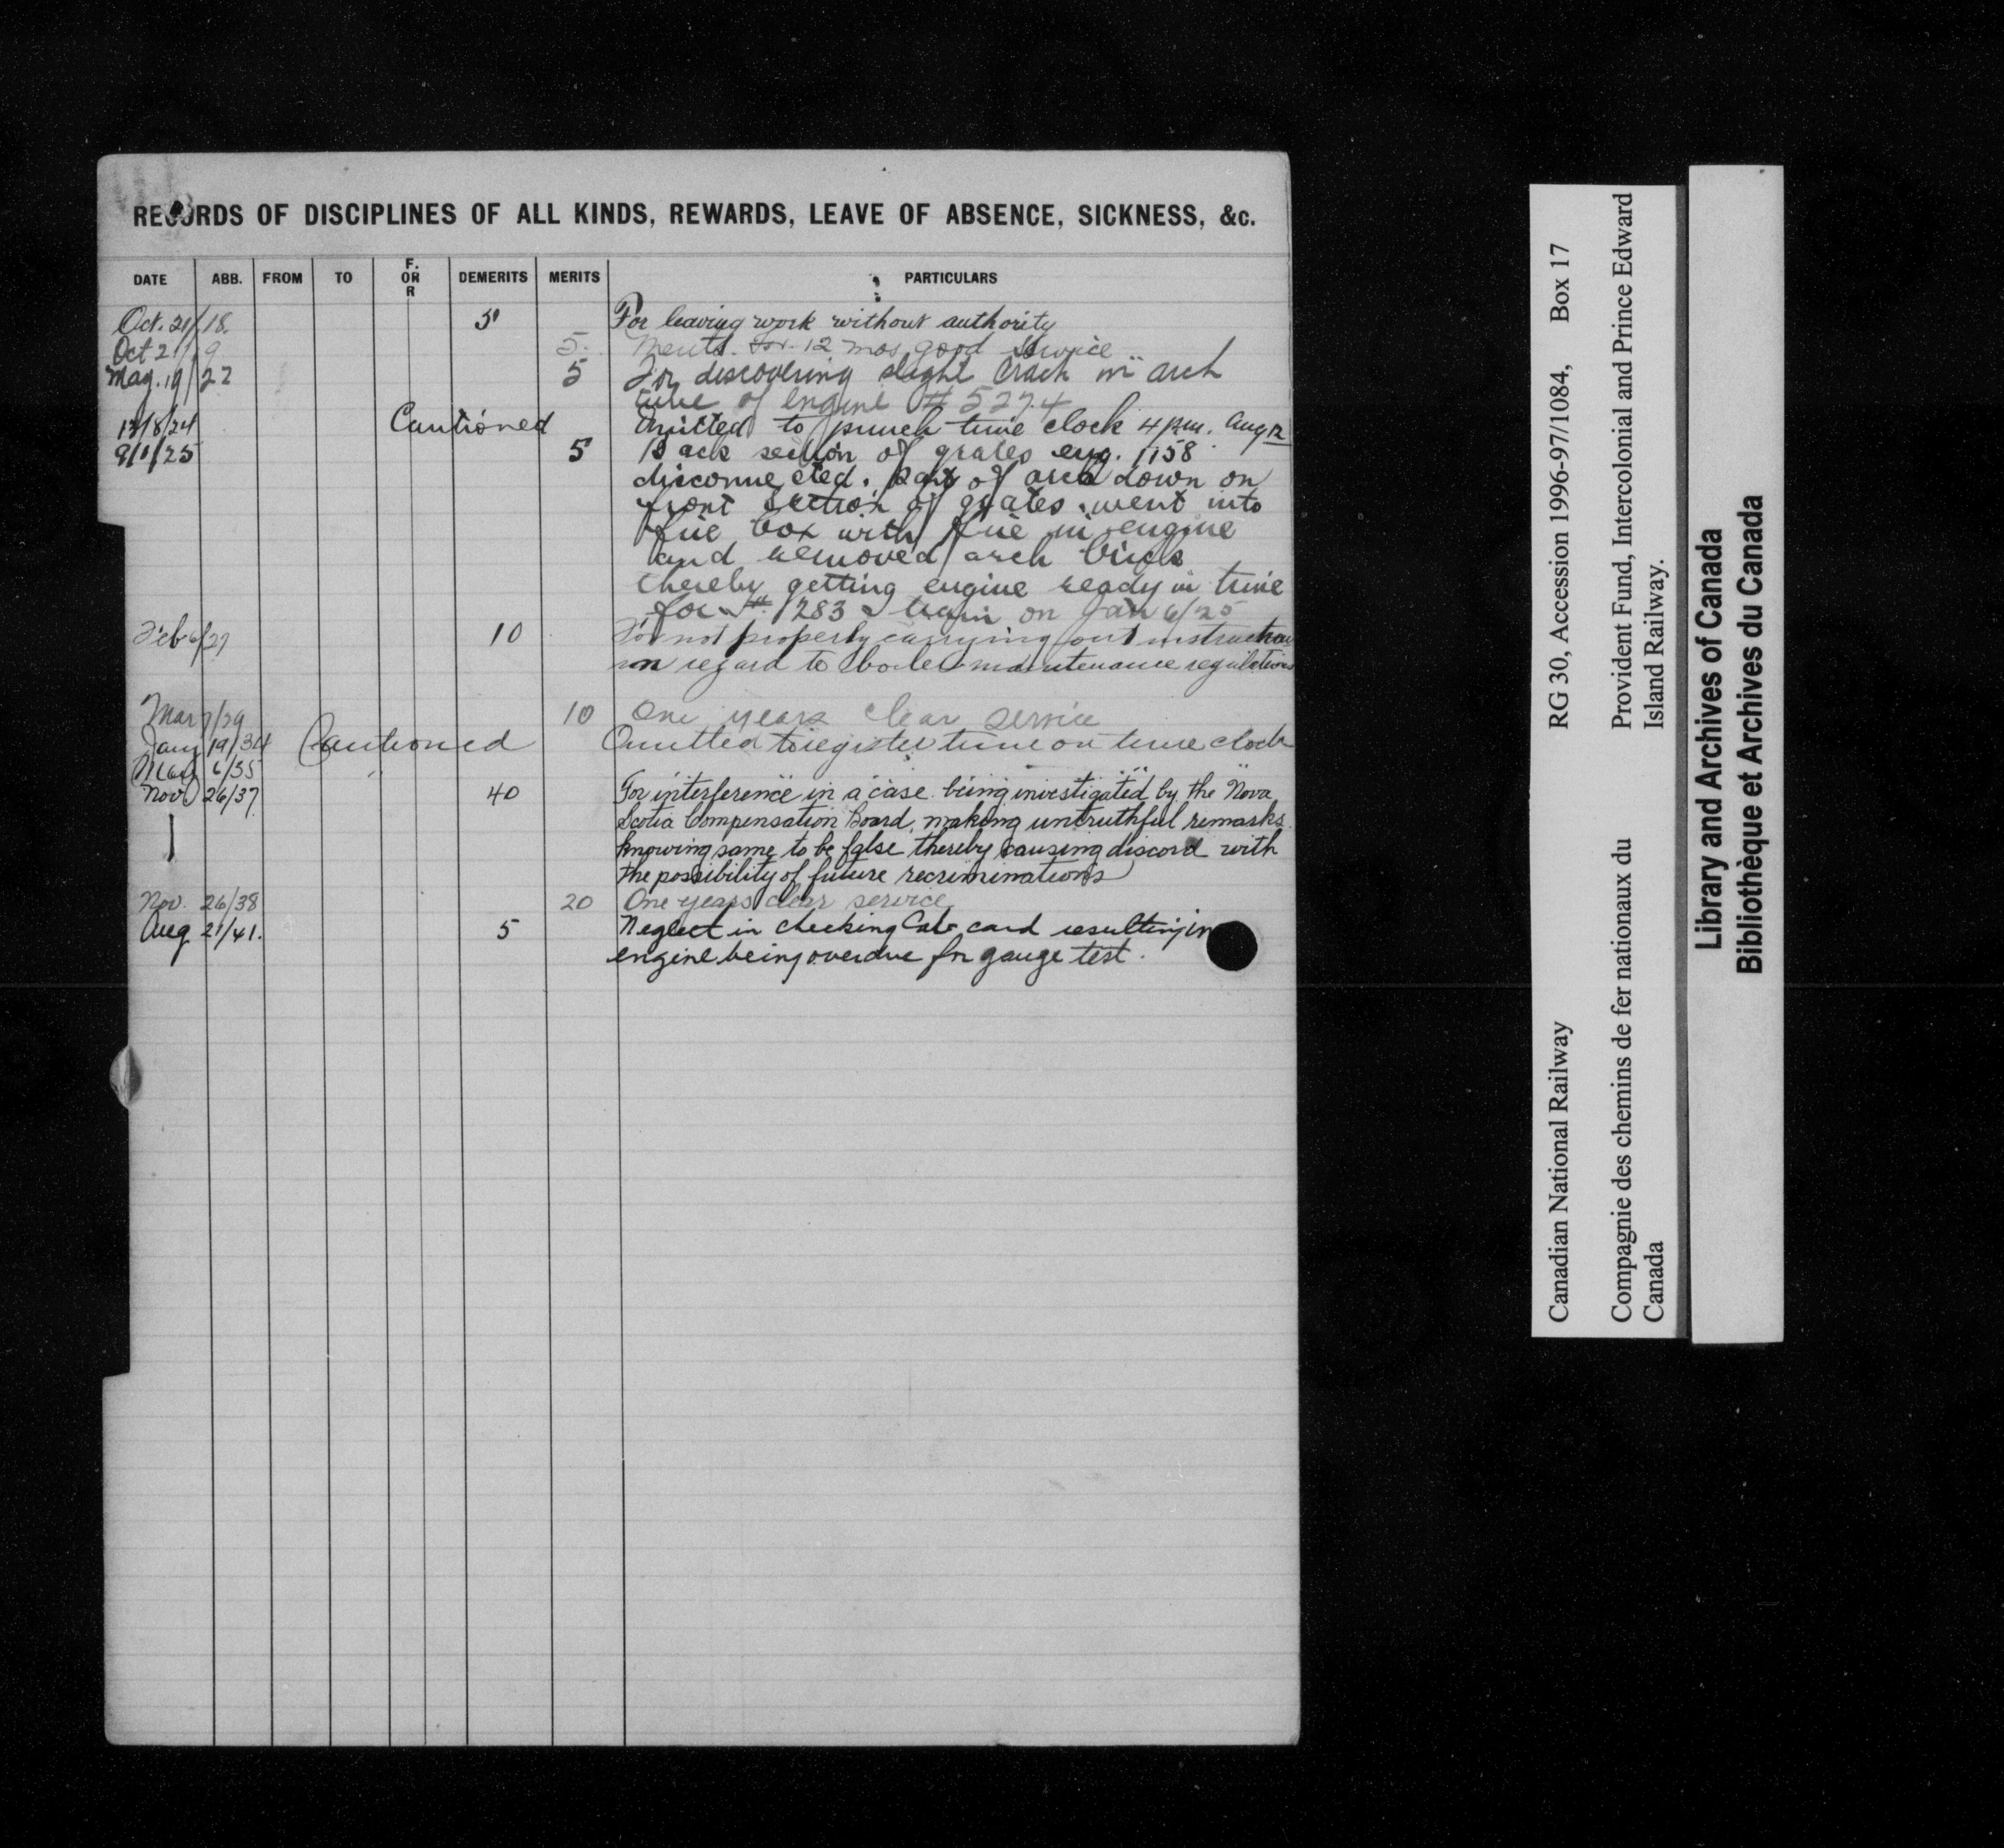 RECORDS OF DISCIPLINES OF ALL KINDS, REWARDS, LEAVE OF ABSENCE, SICKNESS, &c.
DATE ABB. FROM TO F. OR R DEMERITS MERITS PARTICULARS
Oct. 21/18. 5 For leaving work without authority
Oct 21/19 5. Merits. for 12 mos good service
May. 19/22 5 For discovering slight crack in arch
tube of engine # 5274
13/8/24 Cautioned Omitted to punch time clock 4 pm. Aug 12
9/1/25 5 Back section of grates eng. 1158
disconnected. Part of arch down on
front section of grates. went into
fire box with fire in engine
and removed arch brick
thereby getting engine ready in time
for # 283 train on Jan 6/25
Feb 6/27 10 For not properly carrying out instruction
in regard to boiler maintenance regulations
Mar 7/29 10 One years clear service
Jany 19/34 Cautioned Omitted to register time on time clock
May 6/35 " " " "
Nov. 26/37. 40 For interference in a case being investigated by the Nova
Scotia Compensation Board, making untruthful remarks
knowing same to be false thereby causing discord with
the possibility of future recriminations
Nov. 26/38 20 One years clear service
Aug 21/41. 5 Neglect in checking Cab card resulting in
engine being overdue for gauge test.
Canadian National Railway RG 30, Accession 1996-97/1084, Box 17
Compagnie des chemins de fer nationaux du Provident Fund, Intercolonial and Prince Edward
Canada Island Railway.
Library and Archives of Canada
Bibliothèque et Archives du Canada